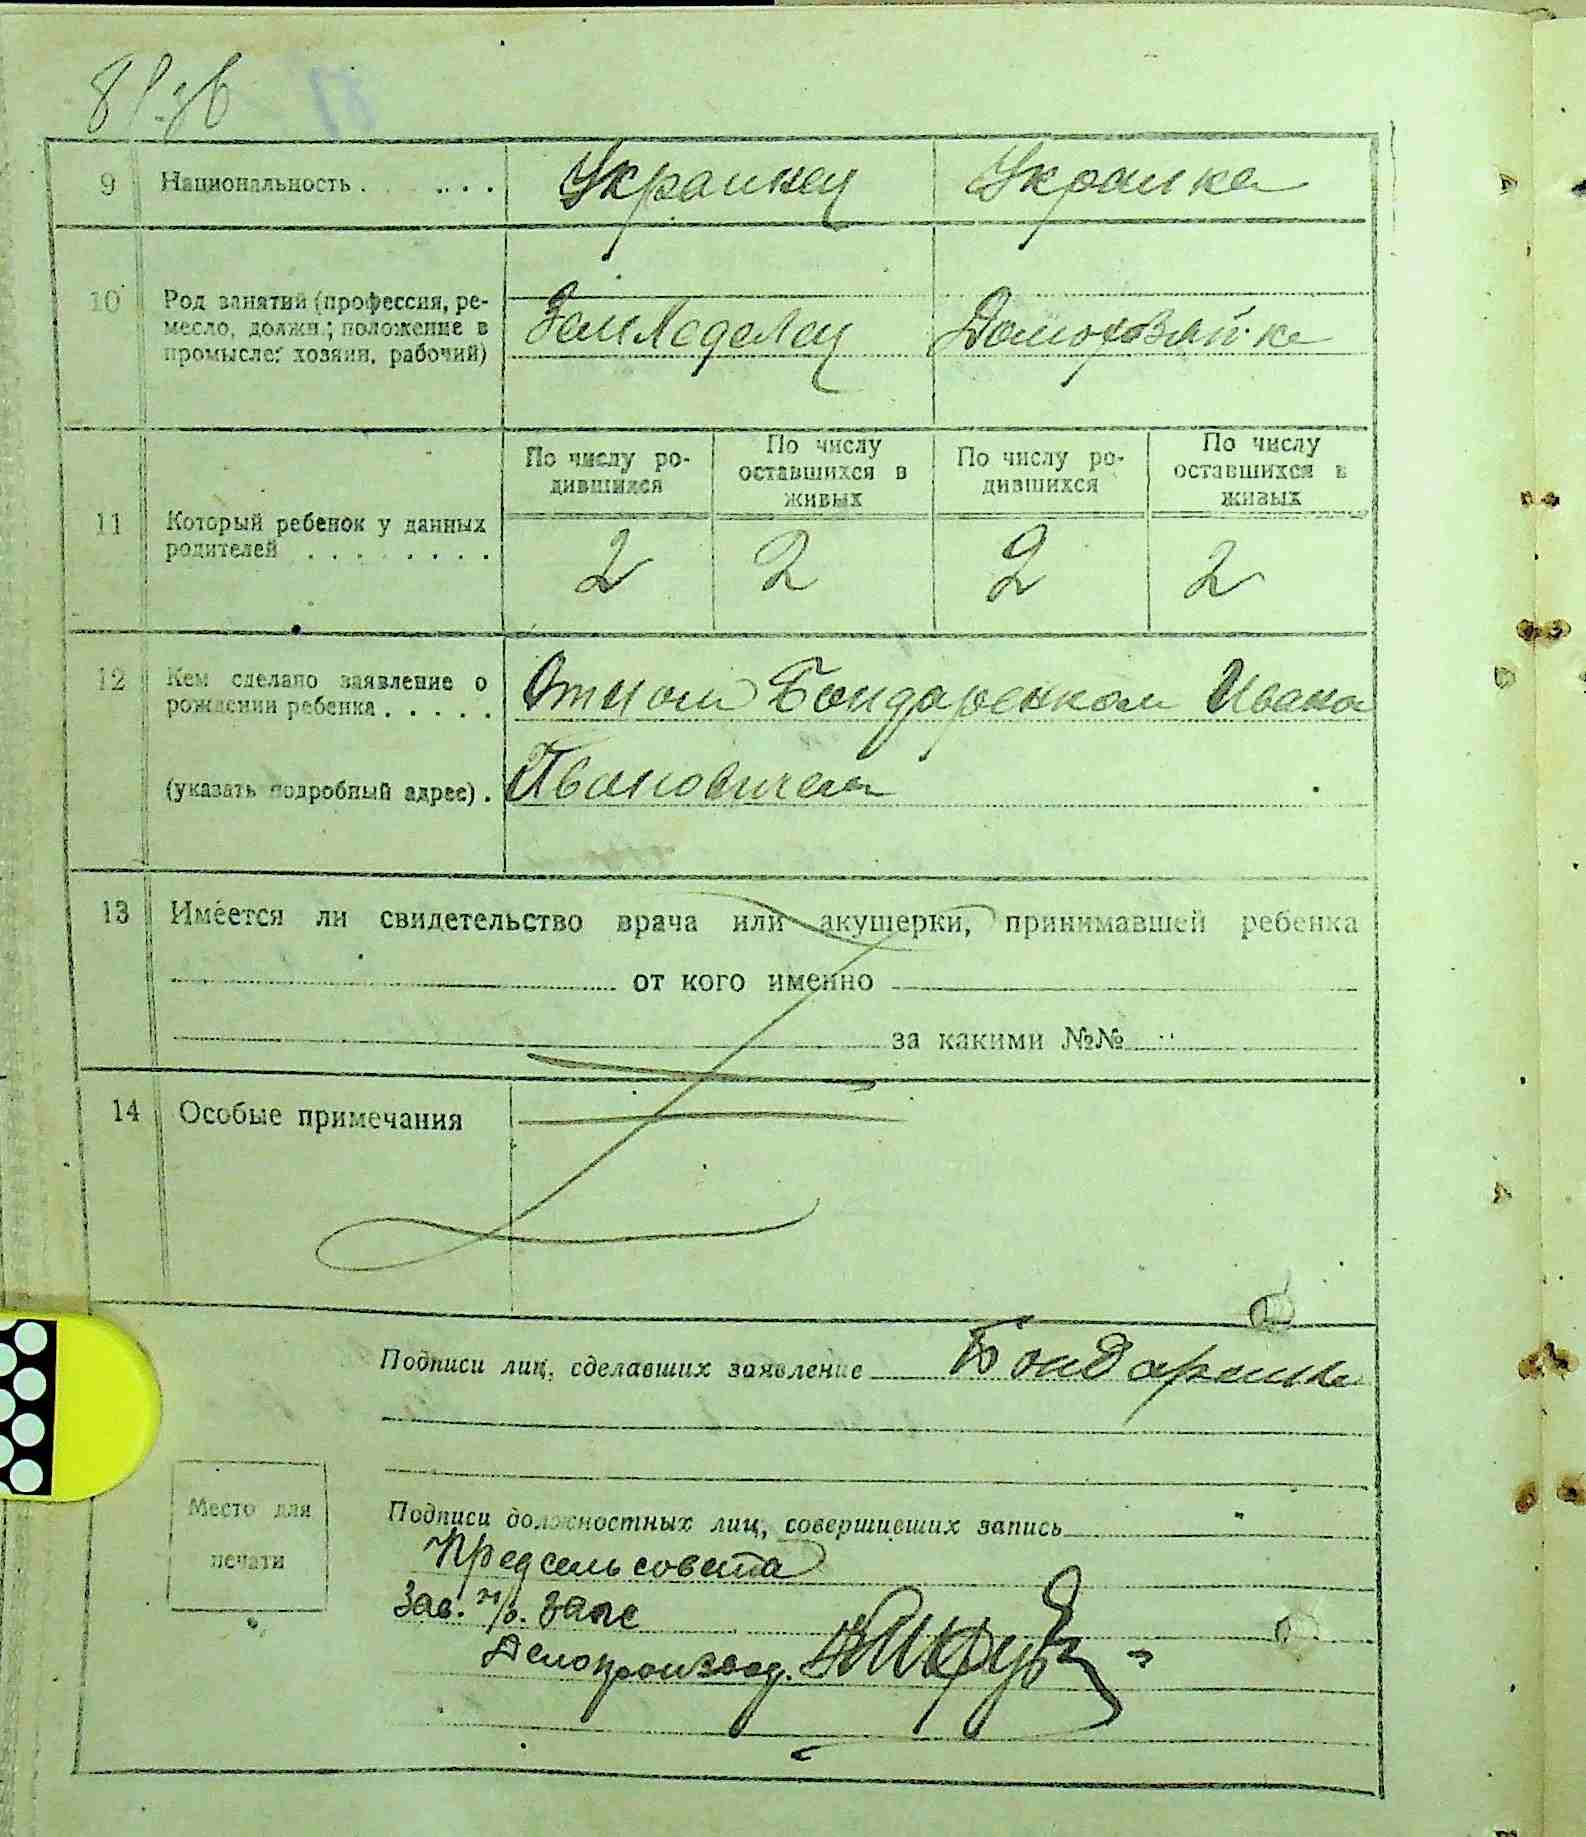 81 об
9 Национальность . . . . . Украинец Украинка
10 Род занятий (профессия, ре-
месло, должн.; положение в
промысле: хозяин, рабочий)
Земледелец Домохозяйка
По числу ро-
дившихся
По числу
оставшихся в
живых
По числу ро-
дившихся
По числу
оставшихся в
живых
11 Который ребенок у данных
родителей . . . . . . . .
2 2 2 2
12 Кем сделано заявление о
рождении ребенка . . . . .
Отцом Бондаренком Ивано
(указать подробный адрес) . Ивановичем
13 Имеется ли свидетельство врача или акушерки, принимавшей ребенка
от кого именно
за какими №№
14 Особые примечания
Подписи лиц, сделавших заявление Бондаренко
Место для
печати
Подписи должностных лиц, совершивших запись
Предсельсовета
Зав. загс
Делопроизвод.